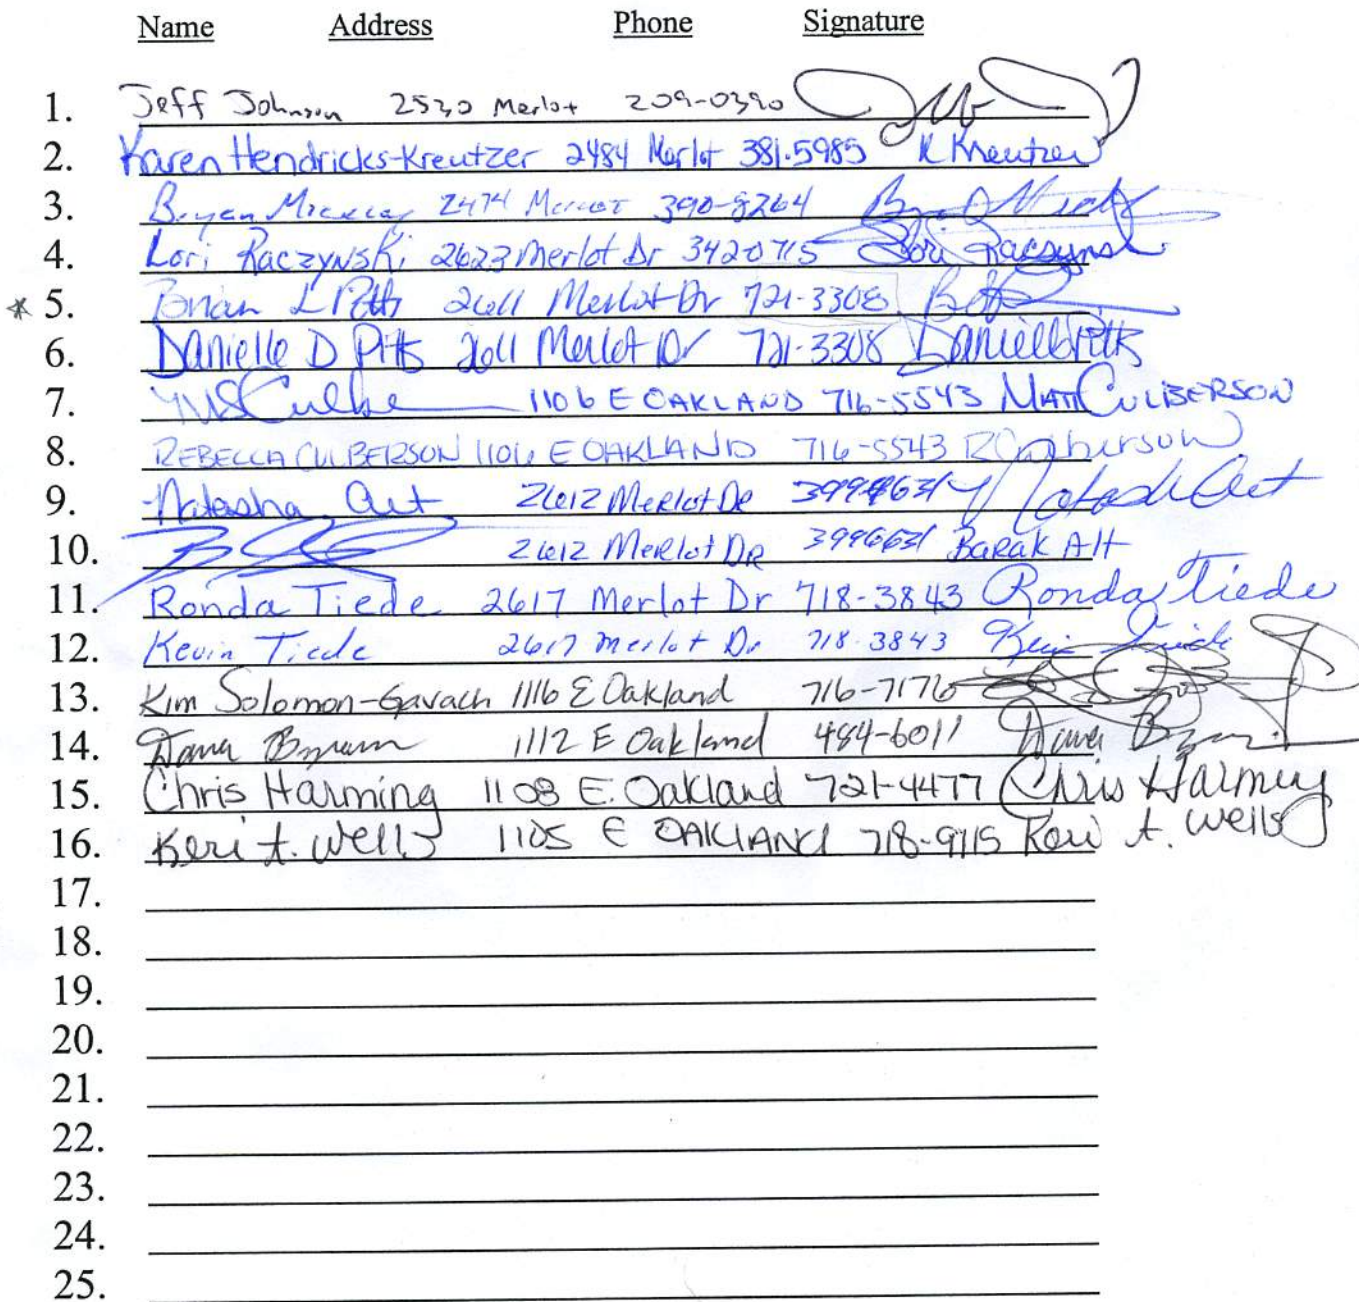 Name Address Phone Signature
1. Jeff Johnson 2530 Merlot 209-0390
2. Karen Hendricks-Kreutzer 2484 Merlot 381-5985 K Kreutzer
3. Bryan 2474 Merlot 390-8264
4. Lori Raczynski 2623 Merlot Dr 3420715 Lori Raczynski
* 5. Brian L Pitts 2611 Merlot Dr 721-3308
6. Danielle D Pitts 2611 Merlot Dr 721-3308 Danielle Pitts
7. 1106 E OAKLAND 716-5543 MATT CULBERSON
8. REBECCA CULBERSON 1106 E OAKLAND 716-5543 R Culberson
9. Natasha Alt 2612 Merlot Dr 3996631 Natasha Alt
10. 2612 Merlot DR 3996631 Barak Alt
11. Ronda Tiede 2617 Merlot Dr 718-3843 Ronda Tiede
12. Kevin Tiede 2617 Merlot Dr 718-3843 Kevin Tiede
13. Kim Solomon-Gavach 1116 E Oakland 716-7176
14. 1112 E Oakland 484-6011
15. Chris Harming 1108 E. Oakland 721-4477 Chris Harming
16. Keri A. Wells 1105 E OAKLAND 718-9115 Keri A. Wells
17.
18.
19.
20.
21.
22.
23.
24.
25.